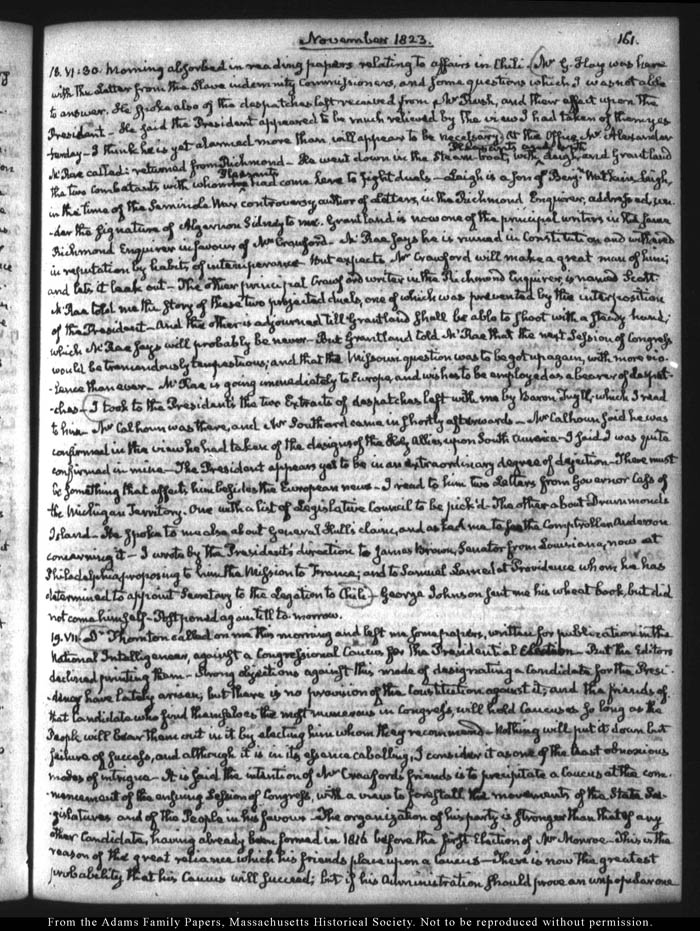 November 1823.
161.
18. VI:30. Morning absorbed in reading papers relating to affairs in Chili. Mr G. Hay was here
with the Letter from the Slave indemnity Commissioners, and some questions which I was not able
to answer. He spoke also of the despatches last received from Mr Rush, and their effect upon the
President— He said the President appeared to be much relieved by the view I had taken of them yes-
terday— I think he is yet alarmed more than will appear to be necessary. At the Office Mr Alexander
McRae called; returned from Richmond— He went down in the Steam-boat, with Leigh, and Grantland
the two combatants with whom had come here to fight duels— Leigh is a Son of Benjn Watkins Leigh,
in the time of the Seminole War controversy, author of Letters, in the Richmond Enquirer, addressed, un-
-der the signature of Algernon Sidney to me. Grantland is now one of the principal writers in the same
Richmond Enquirer in favour of Mr Crawford— McRae says he is ruined in Constitution and withered
in reputation by habits of intemperance. But expects Mr Crawford will make a great man of him;
and lets it leak out— The other principal Crawford writer in the Richmond Enquirer, is named Scott
McRae told me the Story of these two projected duels, one of which was prevented by the interposition
of the President— And the other is adjourned till Grantland shall be able to shoot with a steady hand;
which McRae says will probably be never— But Grantland told McRae that the next Session of Congress
would be tremendously tempestuous; and that the Missouri question was to be got up again, with more vio-
-lence than ever— McRae is going immediately to Europe, and wishes to be employed as a bearer of despat-
-ches— I took to the President's the two Extracts of despatches left with me by Baron Tuyll, which I read
to him— Mr Calhoun was there, and Mr Southard came in shortly afterwards— Mr Calhoun said he was
confirmed in the view he had taken of the designs of the Holy Allies upon South America— I said I was quite
confirmed in mine— The President appears yet to be in an extraordinary degree of dejection— There must
be something that affects him besides the European news— I read to him two Letters from Governor Cass of
the Michigan Territory. One with a list of Legislative Council to be pick'd. The other about Drummond's
Island— He spoke to me also about General Hull's claim, and asked me to see the Comptroller Anderson
concerning it— I wrote by the President's direction to James Brown, Senator from Louisiana, now at
Philadelphia, proposing to him the Mission to France; and to Samuel Larned at Providence whom he has
determined to appoint Secretary to the Legation to Chili— George Johnson sent me his wheat book, but did
not come himself— Postponed again till to-morrow.
19. VII. Dr Thornton called on me this morning and left me some papers, written for publication in the
National Intelligencer, against a Congressional Caucus for the Presidential Election— But the Editors
declined printing them— Strong objections against this mode of designating a Candidate for the Presi-
-dency have lately arisen; but there is no provision of the Constitution against it; and the friends of
that Candidate who find themselves the most numerous in Congress, will hold Caucuses so long as the
People will bear them out in it by electing him whom they recommend— Nothing will put it down but
failure of success, and although it is in its essence caballing, I consider it as one of the least obnoxious
modes of intrigue— It is said the intention of Mr Crawford's friends is to precipitate a Caucus at the com-
mencement of the ensuing Session of Congress, with a view to forestall the movements of the State Le-
gislatures and of the People in his favour— The organization of his party is stronger than that of any
other Candidate, having already been formed in 1816 before the first Election of Mr Monroe— This is the
reason of the great reliance which his friends place upon a Caucus— There is now the greatest
probability that his Caucus will succeed; but if his Administration should prove an unpopular one
From the Adams Family Papers, Massachusetts Historical Society. Not to be reproduced without permission.